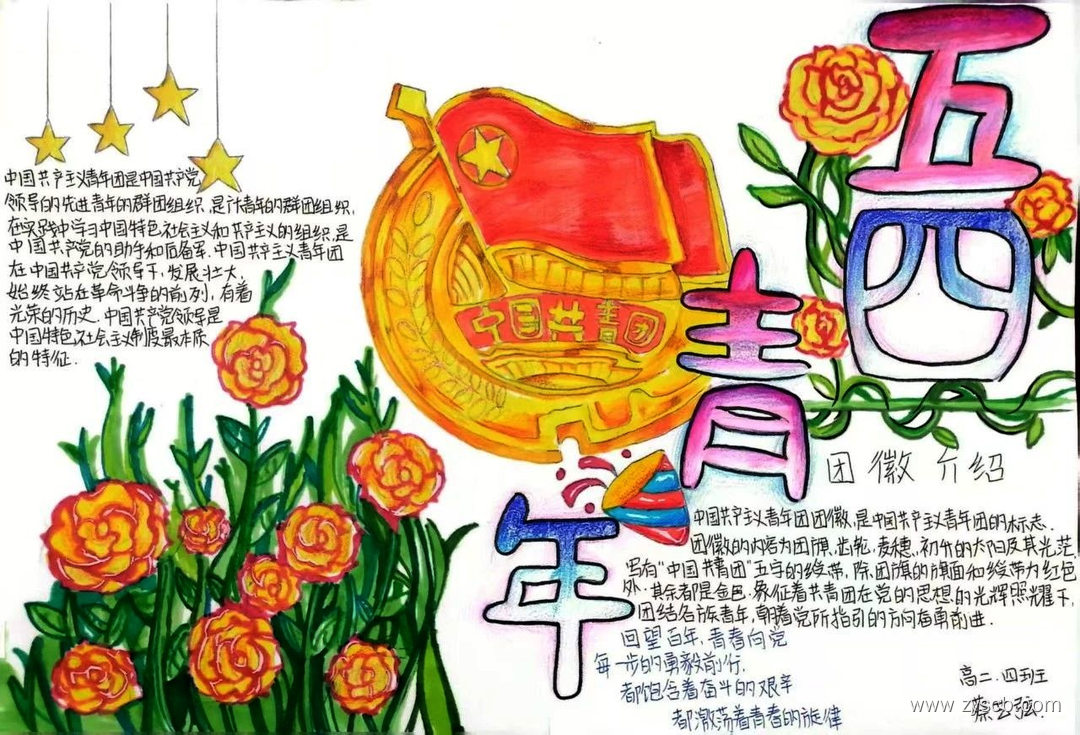 五四
青年
中国共青团
中国共产主义青年团是中国共产党
领导的先进青年的群团组织,是广大青年的群团组织,
在实践中学习中国特色社会主义和共产主义的组织,是
中国共产党的助手和后备军.中国共产主义青年团
在中国共产党领导下,发展壮大,
始终站在革命斗争的前列,有着
光荣的历史.中国共产党领导是
中国特色社会主义制度最本质
的特征.
团徽介绍
中国共产主义青年团团徽,是中国共产主义青年团的标志.
团徽的内容为团旗,齿轮,麦穗,初升的太阳及其光芒,
写有“中国共青团”五字的绶带,除团旗的旗面和绶带为红色
外,其余都是金色.象征着共青团在党的思想的光辉照耀下,
团结各族青年,朝着党所指引的方向奋勇前进.
回望百年,青春向党
每一步的勇毅前行,
都饱含着奋斗的艰辛
都激荡着青春的旋律
高二.四班